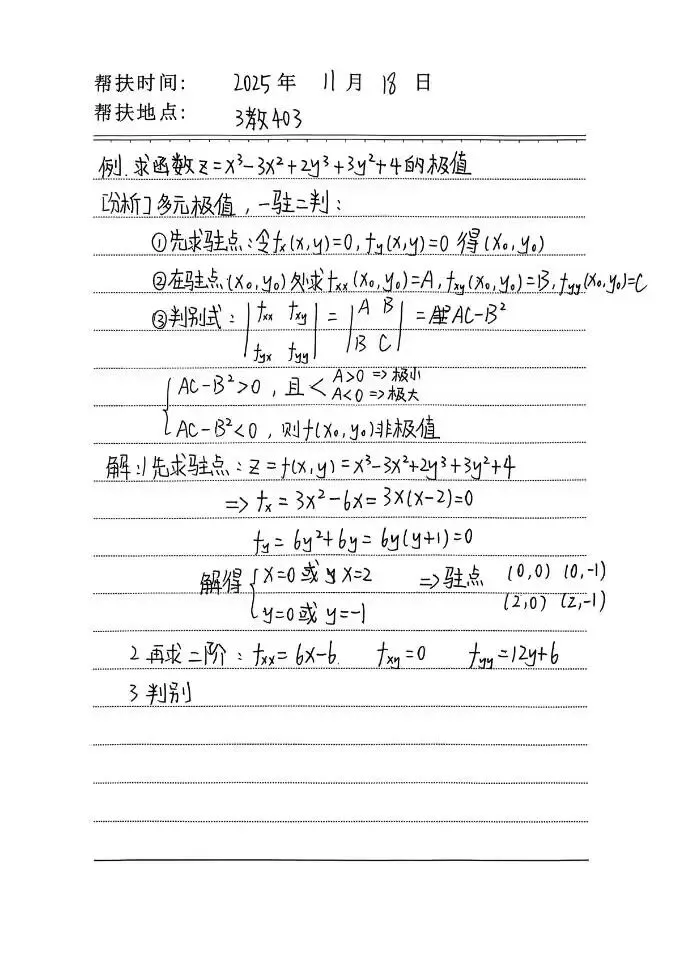 帮扶时间: 2025年 11月 18日
帮扶地点: 3教403
例.求函数z=x³-3x²+2y³+3y²+4的极值
[分析]多元极值,一驻二判:
①先求驻点:令fx(x,y)=0,fy(x,y)=0 得(x₀,y₀)
②在驻点(x₀,y₀)处求fxx(x₀,y₀)=A,fxy(x₀,y₀)=B,fyy(x₀,y₀)=C
③判别式: |fxx fxy| = |A B| = AC-B²
|fyx fyy| |B C|
{ AC-B²>0,且< A>0 => 极小
A<0 => 极大
AC-B²<0,则f(x₀,y₀)非极值
解:1先求驻点:z=f(x,y)=x³-3x²+2y³+3y²+4
=> fx=3x²-6x=3x(x-2)=0
fy=6y²+6y=6y(y+1)=0
解得{ x=0或 x=2 =>驻点 (0,0) (0,-1)
y=0或 y=-1 (2,0) (2,-1)
2 再求二阶:fxx=6x-6 fxy=0 fyy=12y+6
3 判别